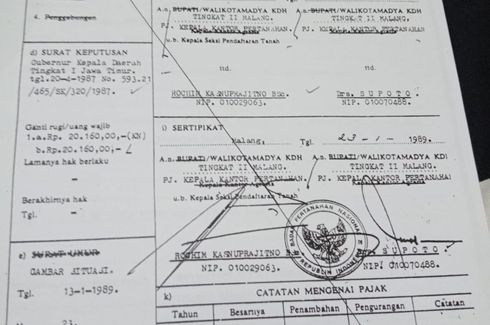 4. Penggabungan
d) SURAT KEPUTUSAN
Gubernur Kepala Daerah
Tingkat I Jawa Timur.
tgl.20-4-1987 No. 593.21
/465/SK/320/1987.
Ganti rugi/uang wajib
1.a.Rp. 20.160,00,-(KN)
b.Rp.20.160,00,-
Lamanya hak berlaku
-
Berakhirnya hak
Tgl. -
e) SURAT UKUR
GAMBAR SITUASI.
Tgl. 13-1-1989.
23.
A.n. BUPATI/WALIKOTAMADYA KDH
TINGKAT II MALANG.
PJ. KEPALA KANTOR PERTANAHAN
Kepala Kantor Agraria
u.b. Kepala Seksi Pendaftaran Tanah
ttd.
ROCHIM KASNUPRAJITNO BSc.
NIP. 010029063.
A.n. BUPATI/WALIKOTAMADYA KDH
TINGKAT II MALANG.
PJ. KEPALA KANTOR PERTANAHAN
Kepala Kantor Agraria
ttd.
Drs. S U P O T O .
NIP. 010070488.
i) SERTIPIKAT
Malang, Tgl. 23-1-1989.
A.n. BUPATI/WALIKOTAMADYA KDH
TINGKAT II MALANG.
PJ. KEPALA KANTOR PERTANAHAN.
Kepala Kantor Agraria
u.b. Kepala Seksi Pendaftaran Tanah
ROCHIM KASNUPRAJITNO B
NIP. 010029063.
A.n. BUPATI/WALIKOTAMADYA KDH
TINGKAT II MALANG.
PJ. KEPALA KANTOR PERTANAHAN
Kepala Kantor Agraria
S U P O T O .
NIP. 010070488.
BADAN PERTANAHAN NASIONAL
REPUBLIK INDONESIA
k) CATATAN MENGENAI PAJAK
Tahun Besarnya Penambahan Pengurangan Catatan